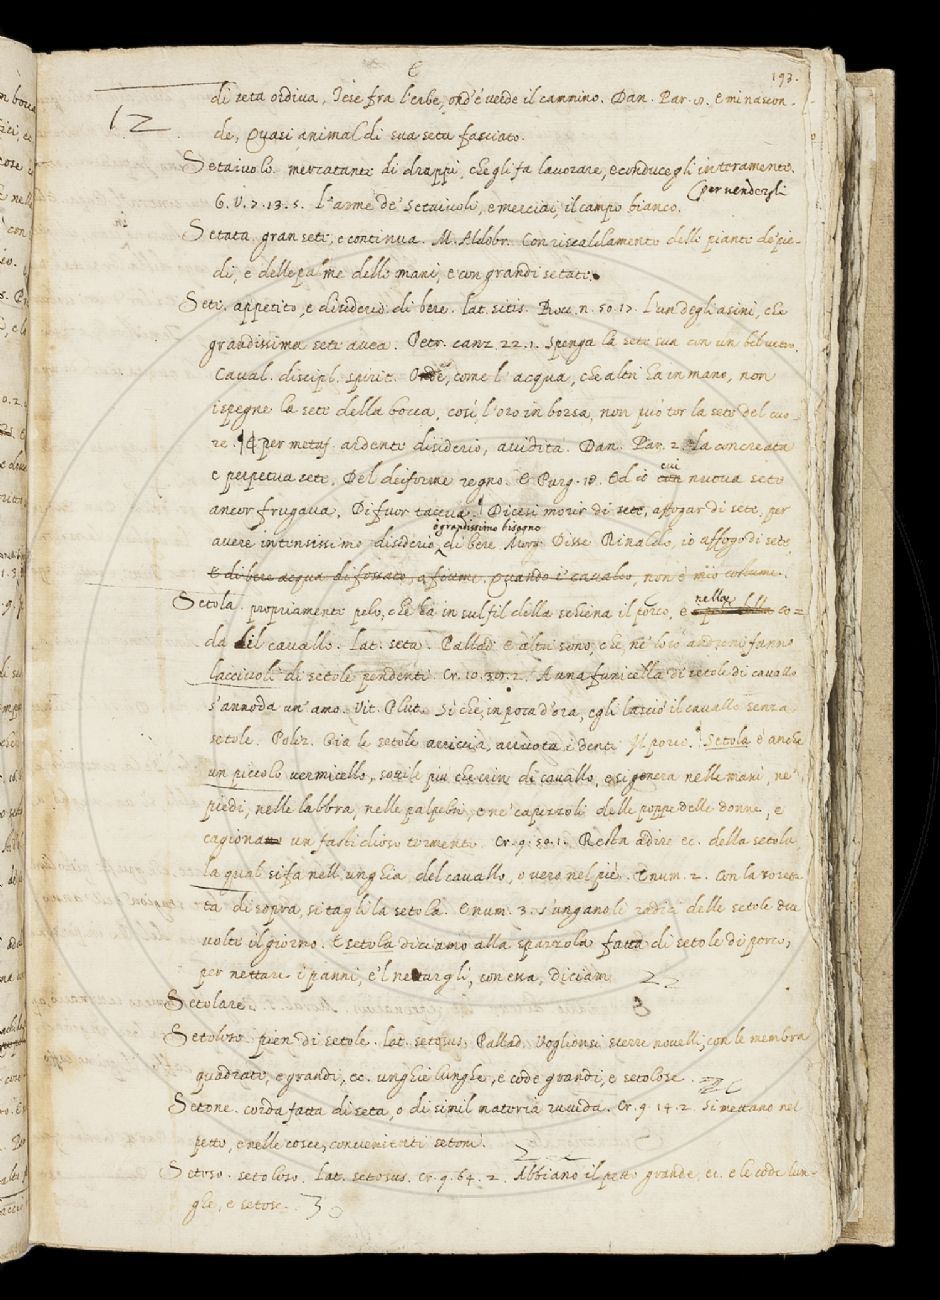 193.
di seta ordiva, Tese fra l'erbe, ond'è verde il cammino. Dan. Par. 8. E mi nascon-
12
de, Quasi animal di sua seta fasciato.
Setaiuolo. mercatante di drappi, che gli fa lavorare, e conducegli interamente.
per vendergli
G. V. 7. 13. 5. l'arme de' Setaiuoli, e merciai, il campo bianco.
Setata. gran sete, e continua. M. Aldobr. Con riscaldamento delle piante de' pie-
di, e delle palme delle mani, e con grandi setate.
Sete. appetito, e disiderio di bere. lat. sitis. Bocc. n. 50. 17. L'un degli asini, che
grandissima sete avea. Petr. canz. 22. 1. Spenga la sete sua con un bel vetro.
Caval. discipl. spirit. Onde, come l'acqua, che altri ha in mano, non
ispegne la sete della bocca, così l'oro in borsa, non può tor la sete del cuo-
re. per metaf. ardente disiderio, avidità. Dan. Par. 2. La concreata
cui
e perpetua sete, Del deiforme regno. E Purg. 18. Ed io nuova sete
ancor frugava, Di fuor taceva. Dicesi morir di sete, affogar di sete, per
o grandissimo bisogno
avere intensissimo disiderio, di bere. Morg. Disse Rinaldo, io affogo di sete,
E di bere acqua di fossato, a fiume, Quando i' cavalco, non è mio costume.
nella
Setola. propriamente pelo, che ha in sul fil della schiena il porco, e co-
da del cavallo. lat. seta. Pallad. E altri sono, che ne' loro androni fanno
lacciuoli di setole pendenti. Cr. 10. 30. 2. A una funicella di setole di cavallo
s'annoda un'amo. Vit. Plut. Si che, in poca d'ora, egli lasciò il cavallo senza
setole. Poliz. Già le setole arriccia, arruota i denti Il porco. Setola è anche
un piccolo vermicello, sottile più che crin di cavallo, e si genera nelle mani, ne'
piedi, nelle labbra, nelle palpebre, e ne' capezzoli delle poppe delle donne, e
cagiona un fastidioso tormento. Cr. 9. 50. 1. Resta a dire ec. della setola,
la qual si fa nell'unghia del cavallo, o vero nel piè. E num. 2. Con la rosetta
di sopra, si tagli la setola. E num. 3. s'ungano le radici delle setole due
volte il giorno. E setola diciamo alla spazzola fatta di setole di porco,
per nettare i panni, e'l nettargli, con essa, diciam
Setolare.
Setoloso. pien di setole. lat. setosus. Pallad. Voglionsi sterre novelli, con le membra
quadrate, e grandi, ec. unghie lunghe, e code grandi, e setolose.
Setone. corda fatta di seta, o di simil materia ruvida. Cr. 9. 14. 2. Si mettano nel
petto, e nelle cosce, convenienti setoni.
Setoso. setoloso. lat. setosus. Cr. 9. 64. 2. Abbiano il petto grande, ec. e le code lun-
ghe, e setose.